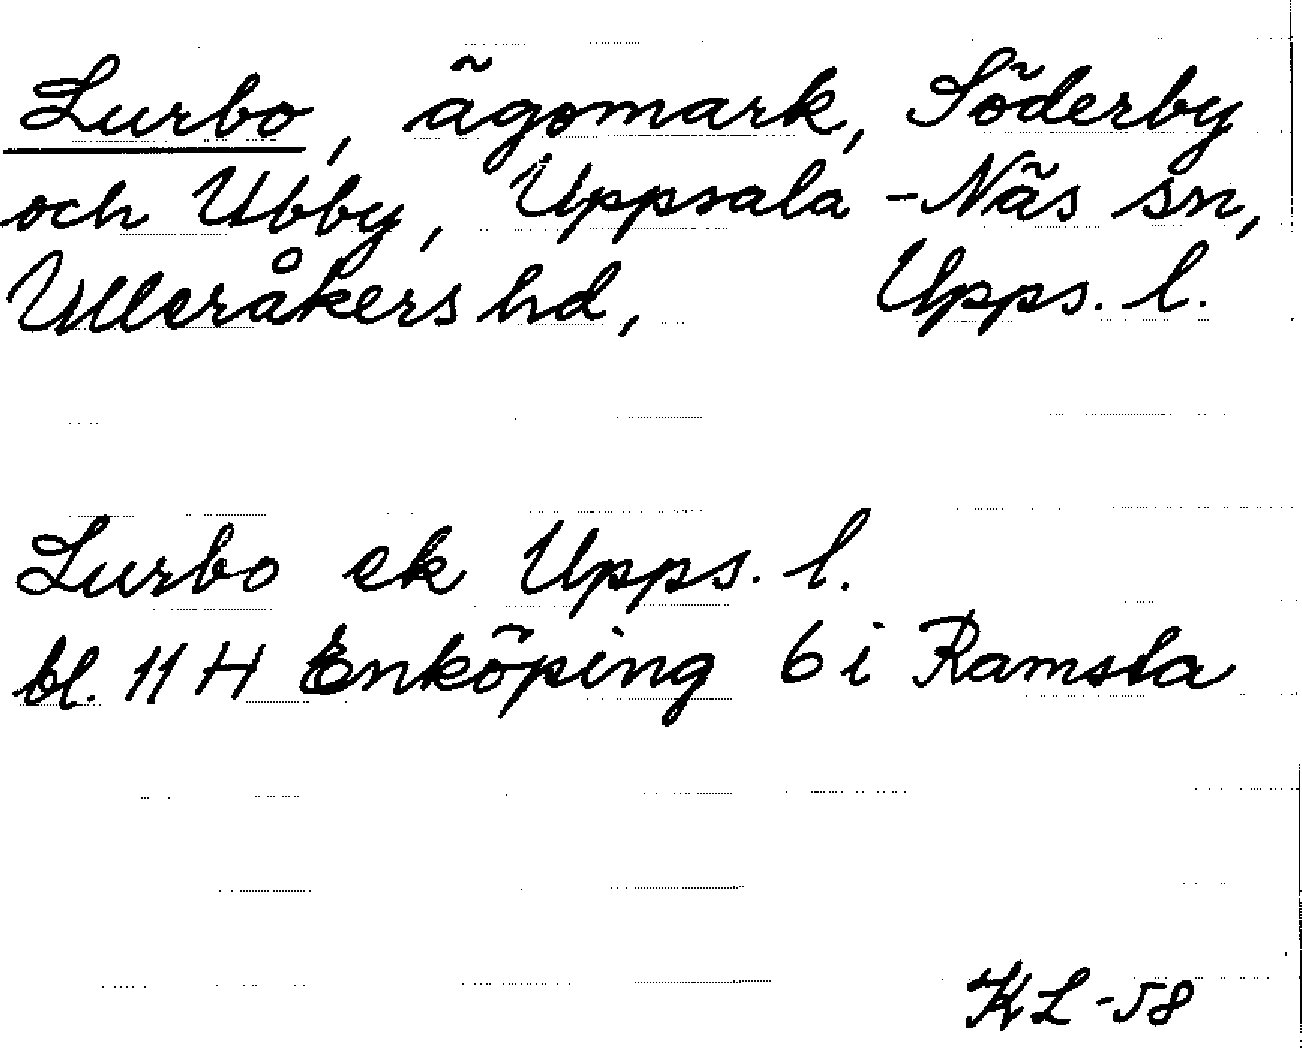 Lurbo, ägomark, Söderby
och Ubby, Uppsala-Näs sn,
Ulleråkers hd, Upps. l.
Lurbo ek Upps. l.
bl. 11 H Enköping 6 i Ramsta
KL-58